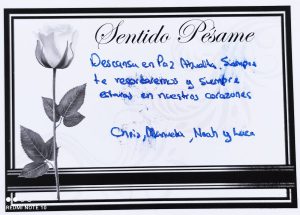 Sentido Pésame
Descansa en Paz Abuelita, Siempre
te recordaremos y siempre
estaras en nuestros corazones
Chris, Manuela, Noah y Luca
REDMI NOTE 10